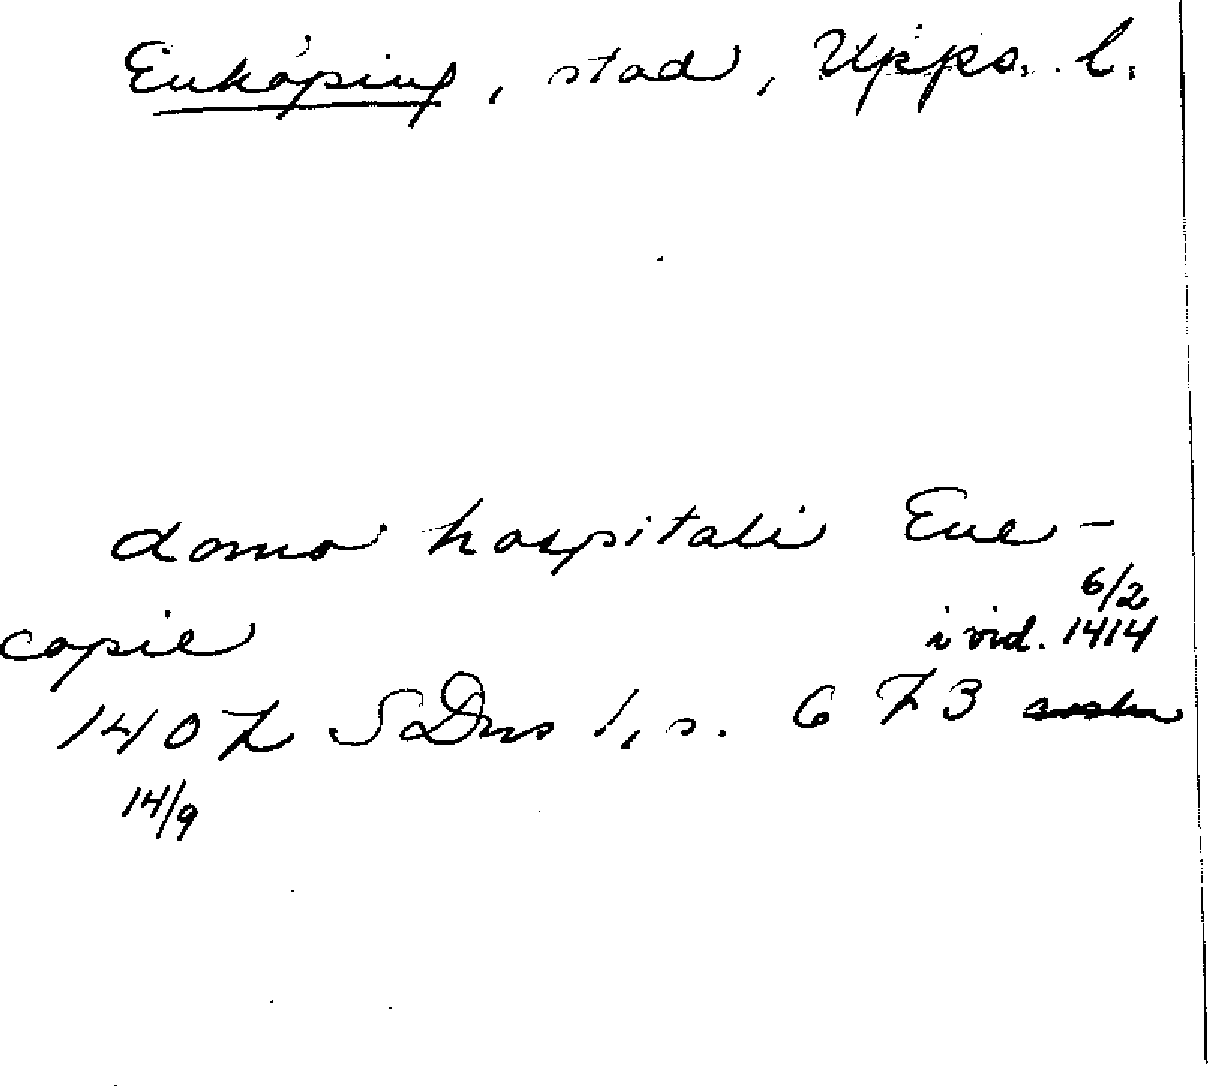 Enköping, stad, Upps. l.
domo hospitali Ene-
copie
i vid. 6/2 1414
1407 SDns 1, s. 673
14/9